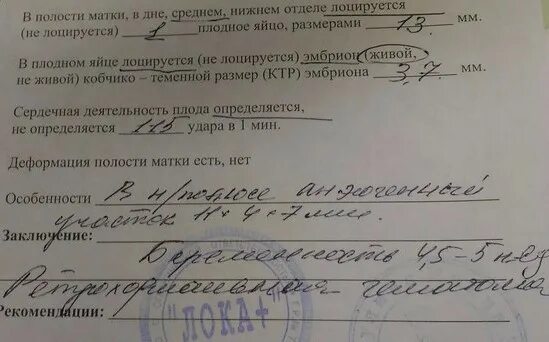 В полости матки, в дне, среднем, нижнем отделе лоцируется
(не лоцируется) 1 плодное яйцо, размерами 13 мм.
В плодном яйце лоцируется (не лоцируется) эмбрион (живой,
не живой) кобчико – теменной размер (КТР) эмбриона 3,7 мм.
Сердечная деятельность плода определяется,
не определяется 115 удара в 1 мин.
Деформация полости матки есть, нет
Особенности В н/полюсе анэхогенный
участок 11 × 4 × 7 мм.
Заключение:
Беременность 4,5 – 5 нед
Ретрохориальная гематома
Рекомендации:
"ЛОКА+"